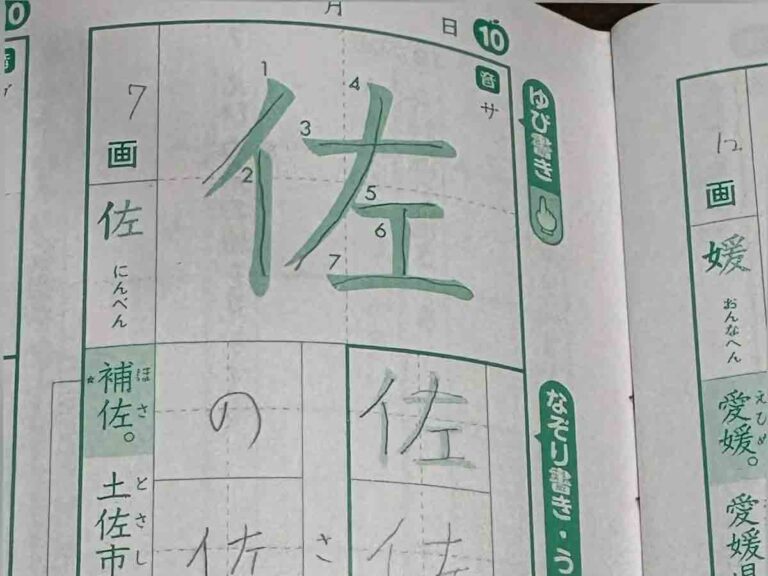 10
月　日
音
サ
ゆび書き
1
2
3
4
5
6
7
佐
7
画
佐
にんべん
補佐。
ほさ
土佐市
とさし
なぞり書き・う
佐
の
佐
さ
佐
12
画
媛
おんなへん
愛媛。
えひめ
愛媛県